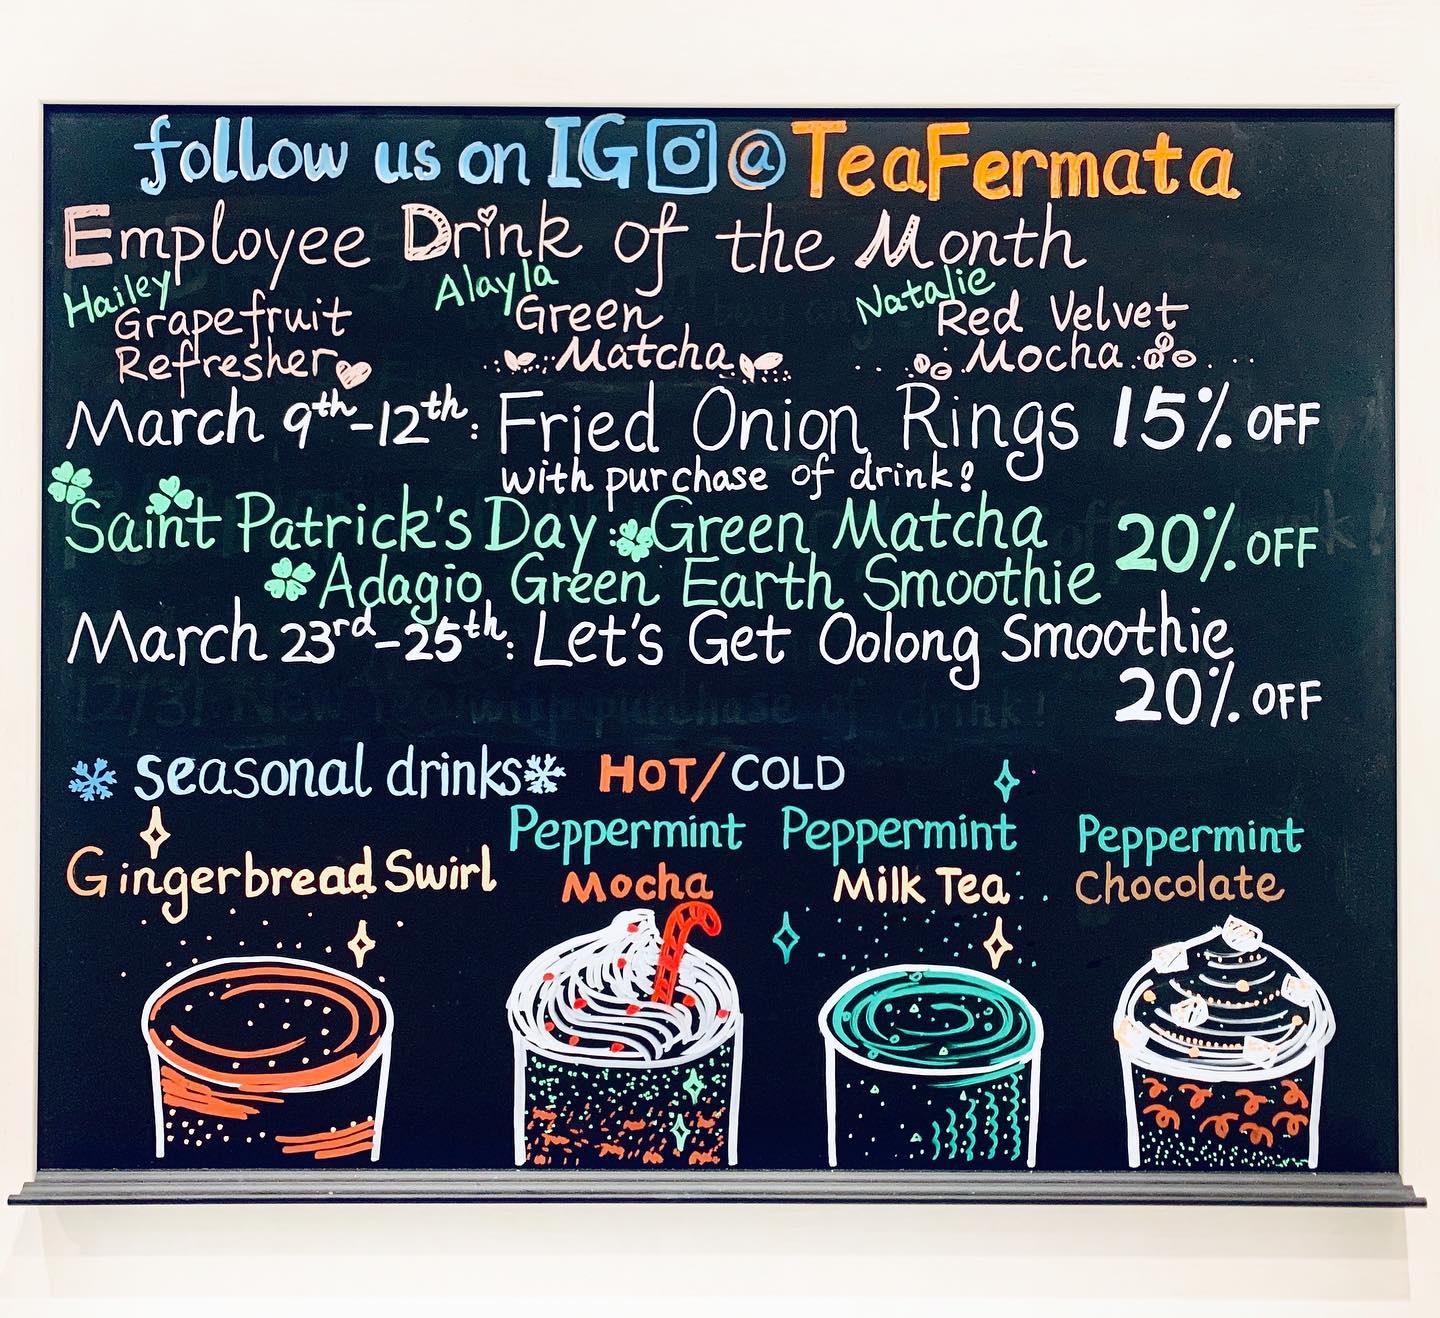 follow us on IG @TeaFermata
Employee Drink of the Month
Hailey Alayla Natalie
Grapefruit Green Red Velvet
Refresher Matcha Mocha
March 9th-12th: Fried Onion Rings 15% OFF
with purchase of drink!
Saint Patrick's Day: Green Matcha 20% OFF
Adagio Green Earth Smoothie
March 23rd-25th: Let's Get Oolong Smoothie
20% OFF
seasonal drinks HOT/COLD
Peppermint Peppermint Peppermint
Gingerbread Swirl Mocha Milk Tea Chocolate